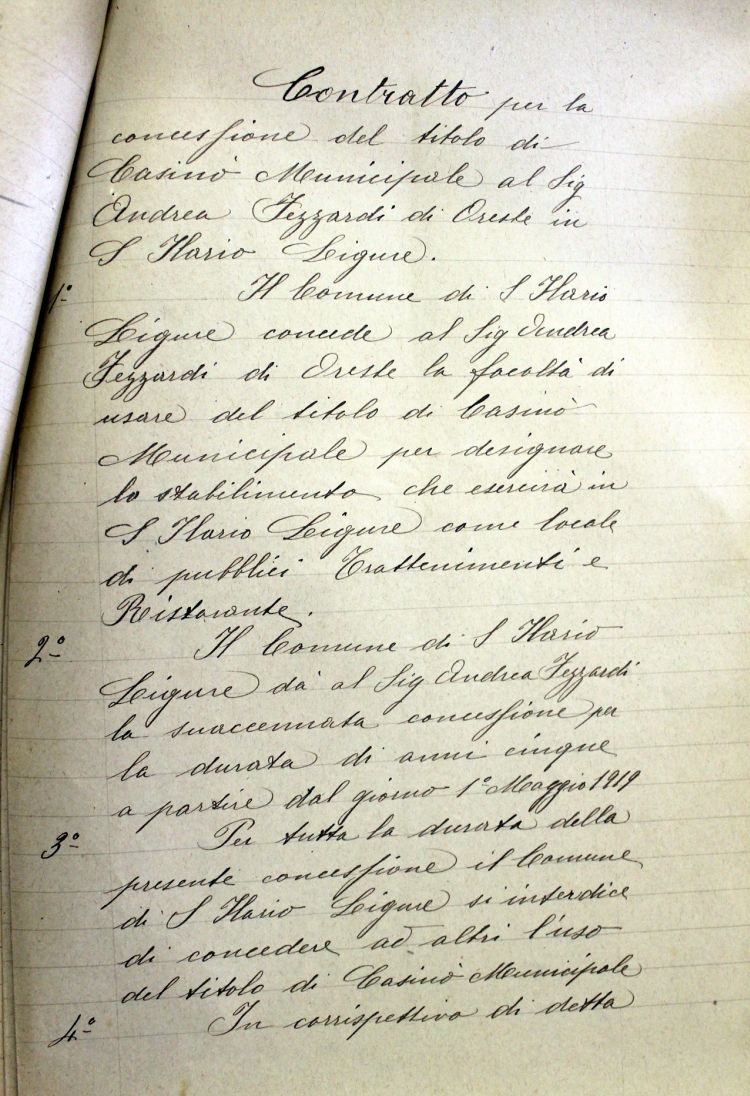 Contratto per la
concessione del titolo di
Casinò Municipale al Sig
Andrea Fezzardi di Oreste in
S Ilario Ligure.
1° Il Comune di S Ilario
Ligure concede al Sig Andrea
Fezzardi di Oreste la facoltà di
usare del titolo di Casinò
Municipale per designare
lo stabilimento che esercirà in
S Ilario Ligure come locale
di pubblici Trattenimenti e
Ristorante.
2° Il Comune di S Ilario
Ligure dà al Sig Andrea Fezzardi
la suaccennata concessione per
la durata di anni cinque
a partire dal giorno 1° Maggio 1919
3° Per tutta la durata della
presente concessione il Comune
di S Ilario Ligure si interdice
di concedere ad altri l'uso
del titolo di Casinò Municipale
4° In corrispettivo di detta